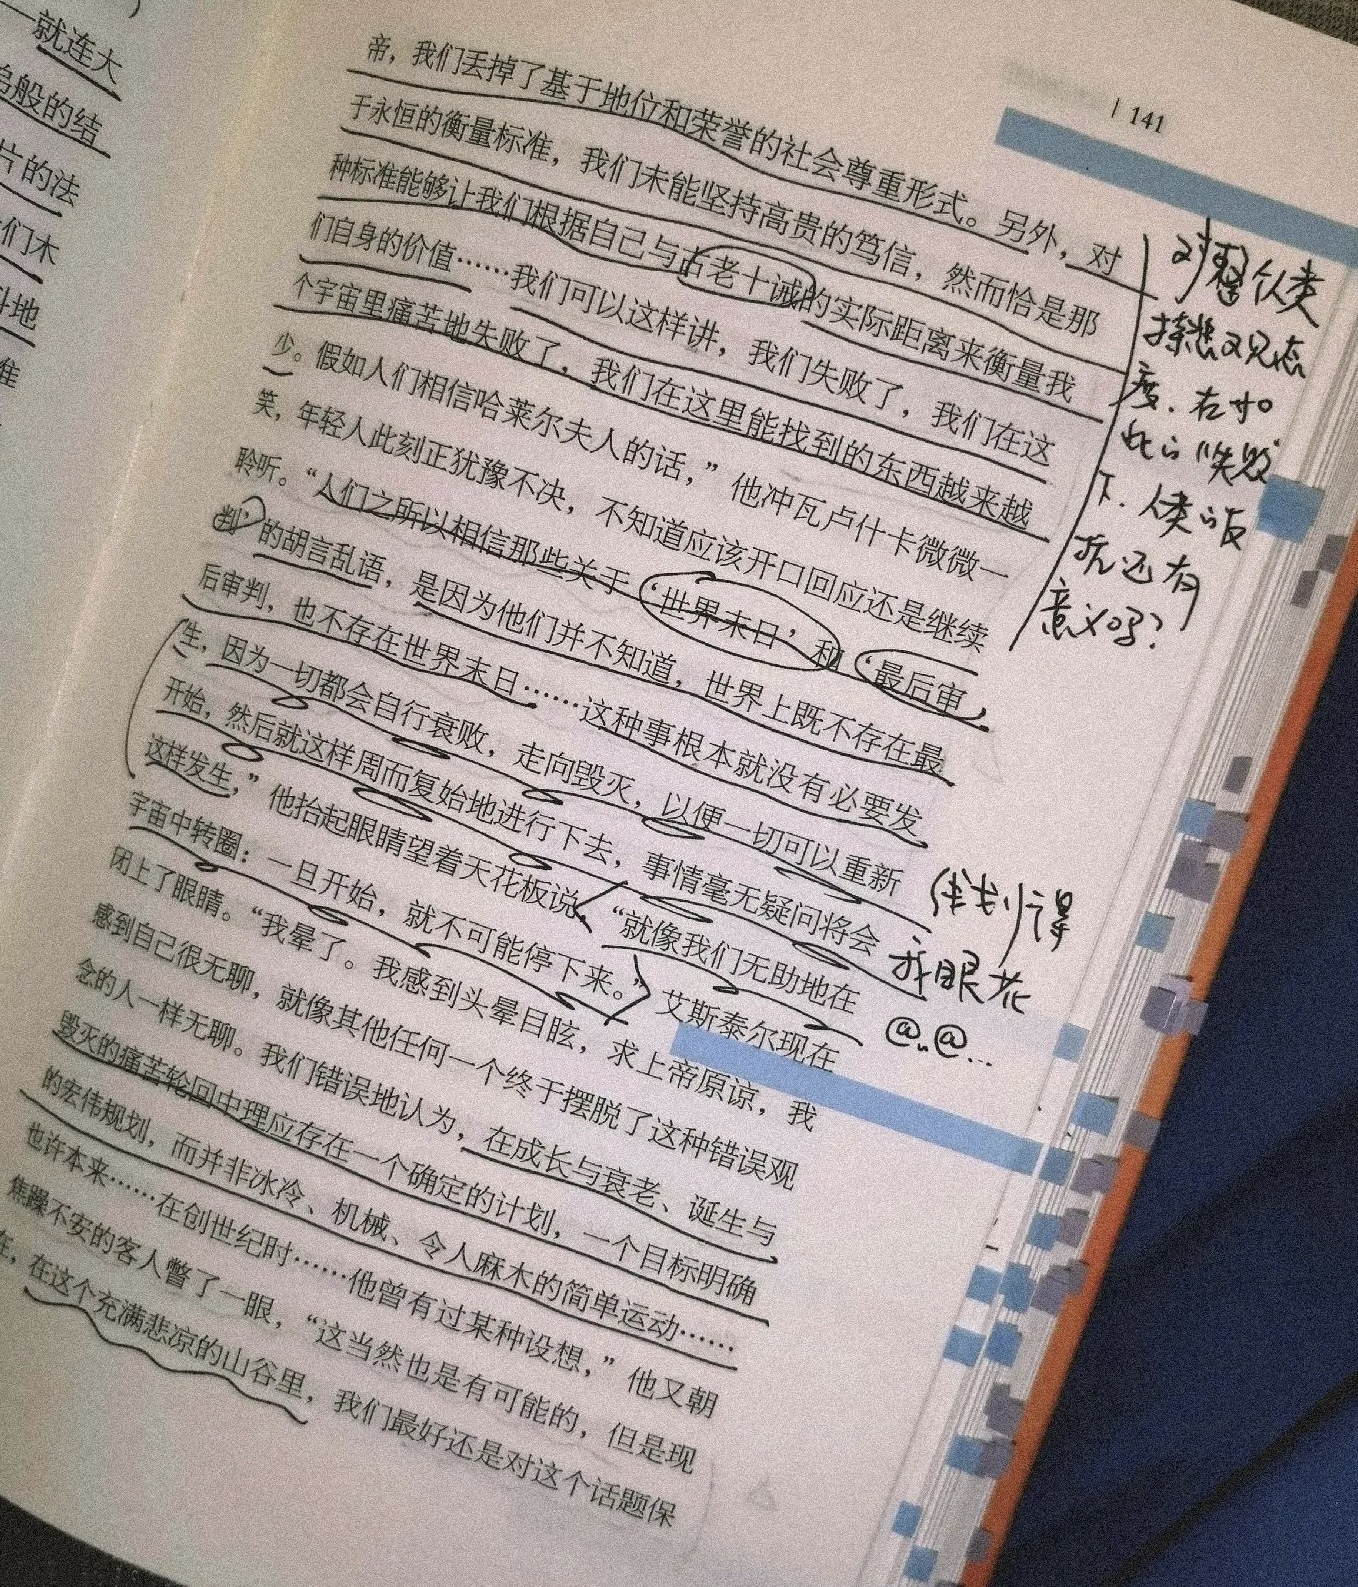 一就连大
般的结
片的法
们木
斗地
准
141
帝，我们丢掉了基于地位和荣誉的社会尊重形式。另外，对
于永恒的衡量标准，我们未能坚持高贵的笃信，然而恰是那
种标准能够让我们根据自己与古老十诫的实际距离来衡量我
们自身的价值……我们可以这样讲，我们失败了，我们在这
个宇宙里痛苦地失败了，我们在这里能找到的东西越来越
少。假如人们相信哈莱尔夫人的话，”他冲瓦卢什卡微微一
笑，年轻人此刻正犹豫不决，不知道应该开口回应还是继续
聆听。“人们之所以相信那些关于‘世界末日’和‘最后审
判’的胡言乱语，是因为他们并不知道，世界上既不存在最
后审判，也不存在世界末日……这种事根本就没有必要发
生，因为一切都会自行衰败，走向毁灭，以便一切可以重新
开始，然后就这样周而复始地进行下去，事情毫无疑问将会
这样发生，”他抬起眼睛望着天花板说，“就像我们无助地在
宇宙中转圈：一旦开始，就不可能停下来。”艾斯泰尔现在
闭上了眼睛。“我晕了。我感到头晕目眩，求上帝原谅，我
感到自己很无聊，就像其他任何一个终于摆脱了这种错误观
念的人一样无聊。我们错误地认为，在成长与衰老、诞生与
毁灭的痛苦轮回中理应存在一个确定的计划，一个目标明确
的宏伟规划，而并非冰冷、机械、令人麻木的简单运动……
也许本来……在创世纪时……他曾有过某种设想，”他又朝
焦躁不安的客人瞥了一眼，“这当然也是有可能的，但是现
在，在这个充满悲凉的山谷里，我们最好还是对这个话题保
对整个人类
持悲观态
度．在如
此的“失败”
下．人类的反
抗还有
意义吗？
划得
我眼花
@.@...